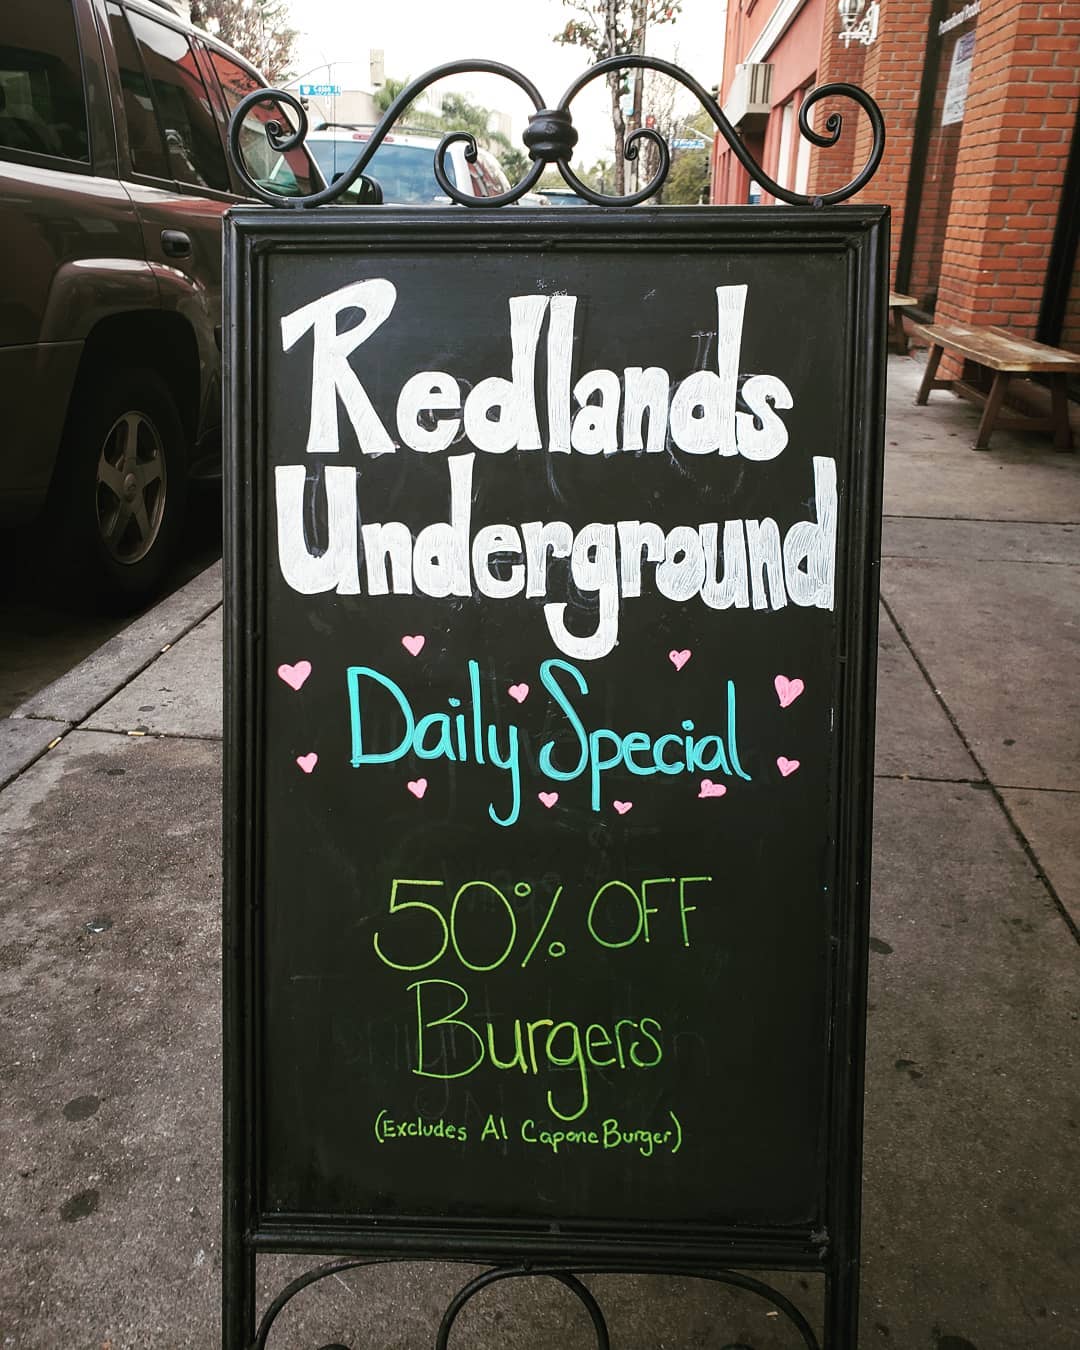 Cajon St
Redlands
Underground
Daily Special
50% OFF
Burgers
(Excludes Al Capone Burger)